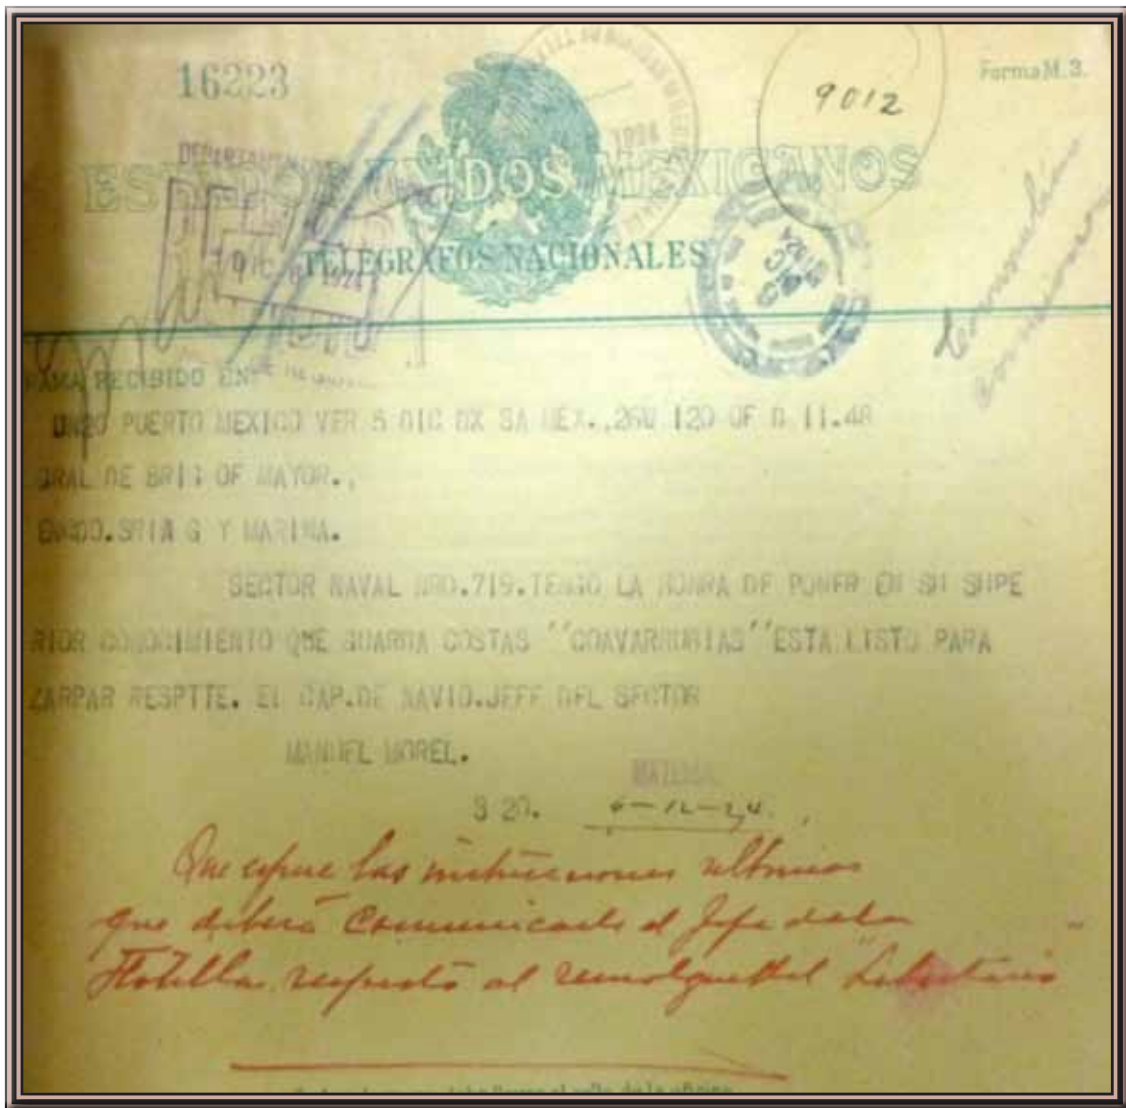 16223
9012
Forma M. 3.
DEPARTAMEN
1924
ESTADOS UNIDOS MEXICANOS
DIC 6 1924
TELEGRAFOS NACIONALES
RAMA RECIBIDO EN
PUERTO MEXICO VER 5 DIC DX SA MEX.,26W 120 OF D 11.48
GRAL DE BRIG OF MAYOR.,
ENCDO.SRIA G Y MARINA.
SECTOR NAVAL NRO.719.TENGO LA HONRA DE PONER EN SU SUPE
RIOR CONOCIMIENTO QUE GUARDA COSTAS ''COAVARRUBIAS''ESTA LISTO PARA
ZARPAR RESPTTE. EL CAP.DE NAVIO.JEFF DEL SECTOR
MANUEL MOREL.
S 20. 6-12-24.
Que espere las instrucciones ultimas
que deberá comunicarle el Jefe de la
Flotilla respecto al remolque del "Libertario